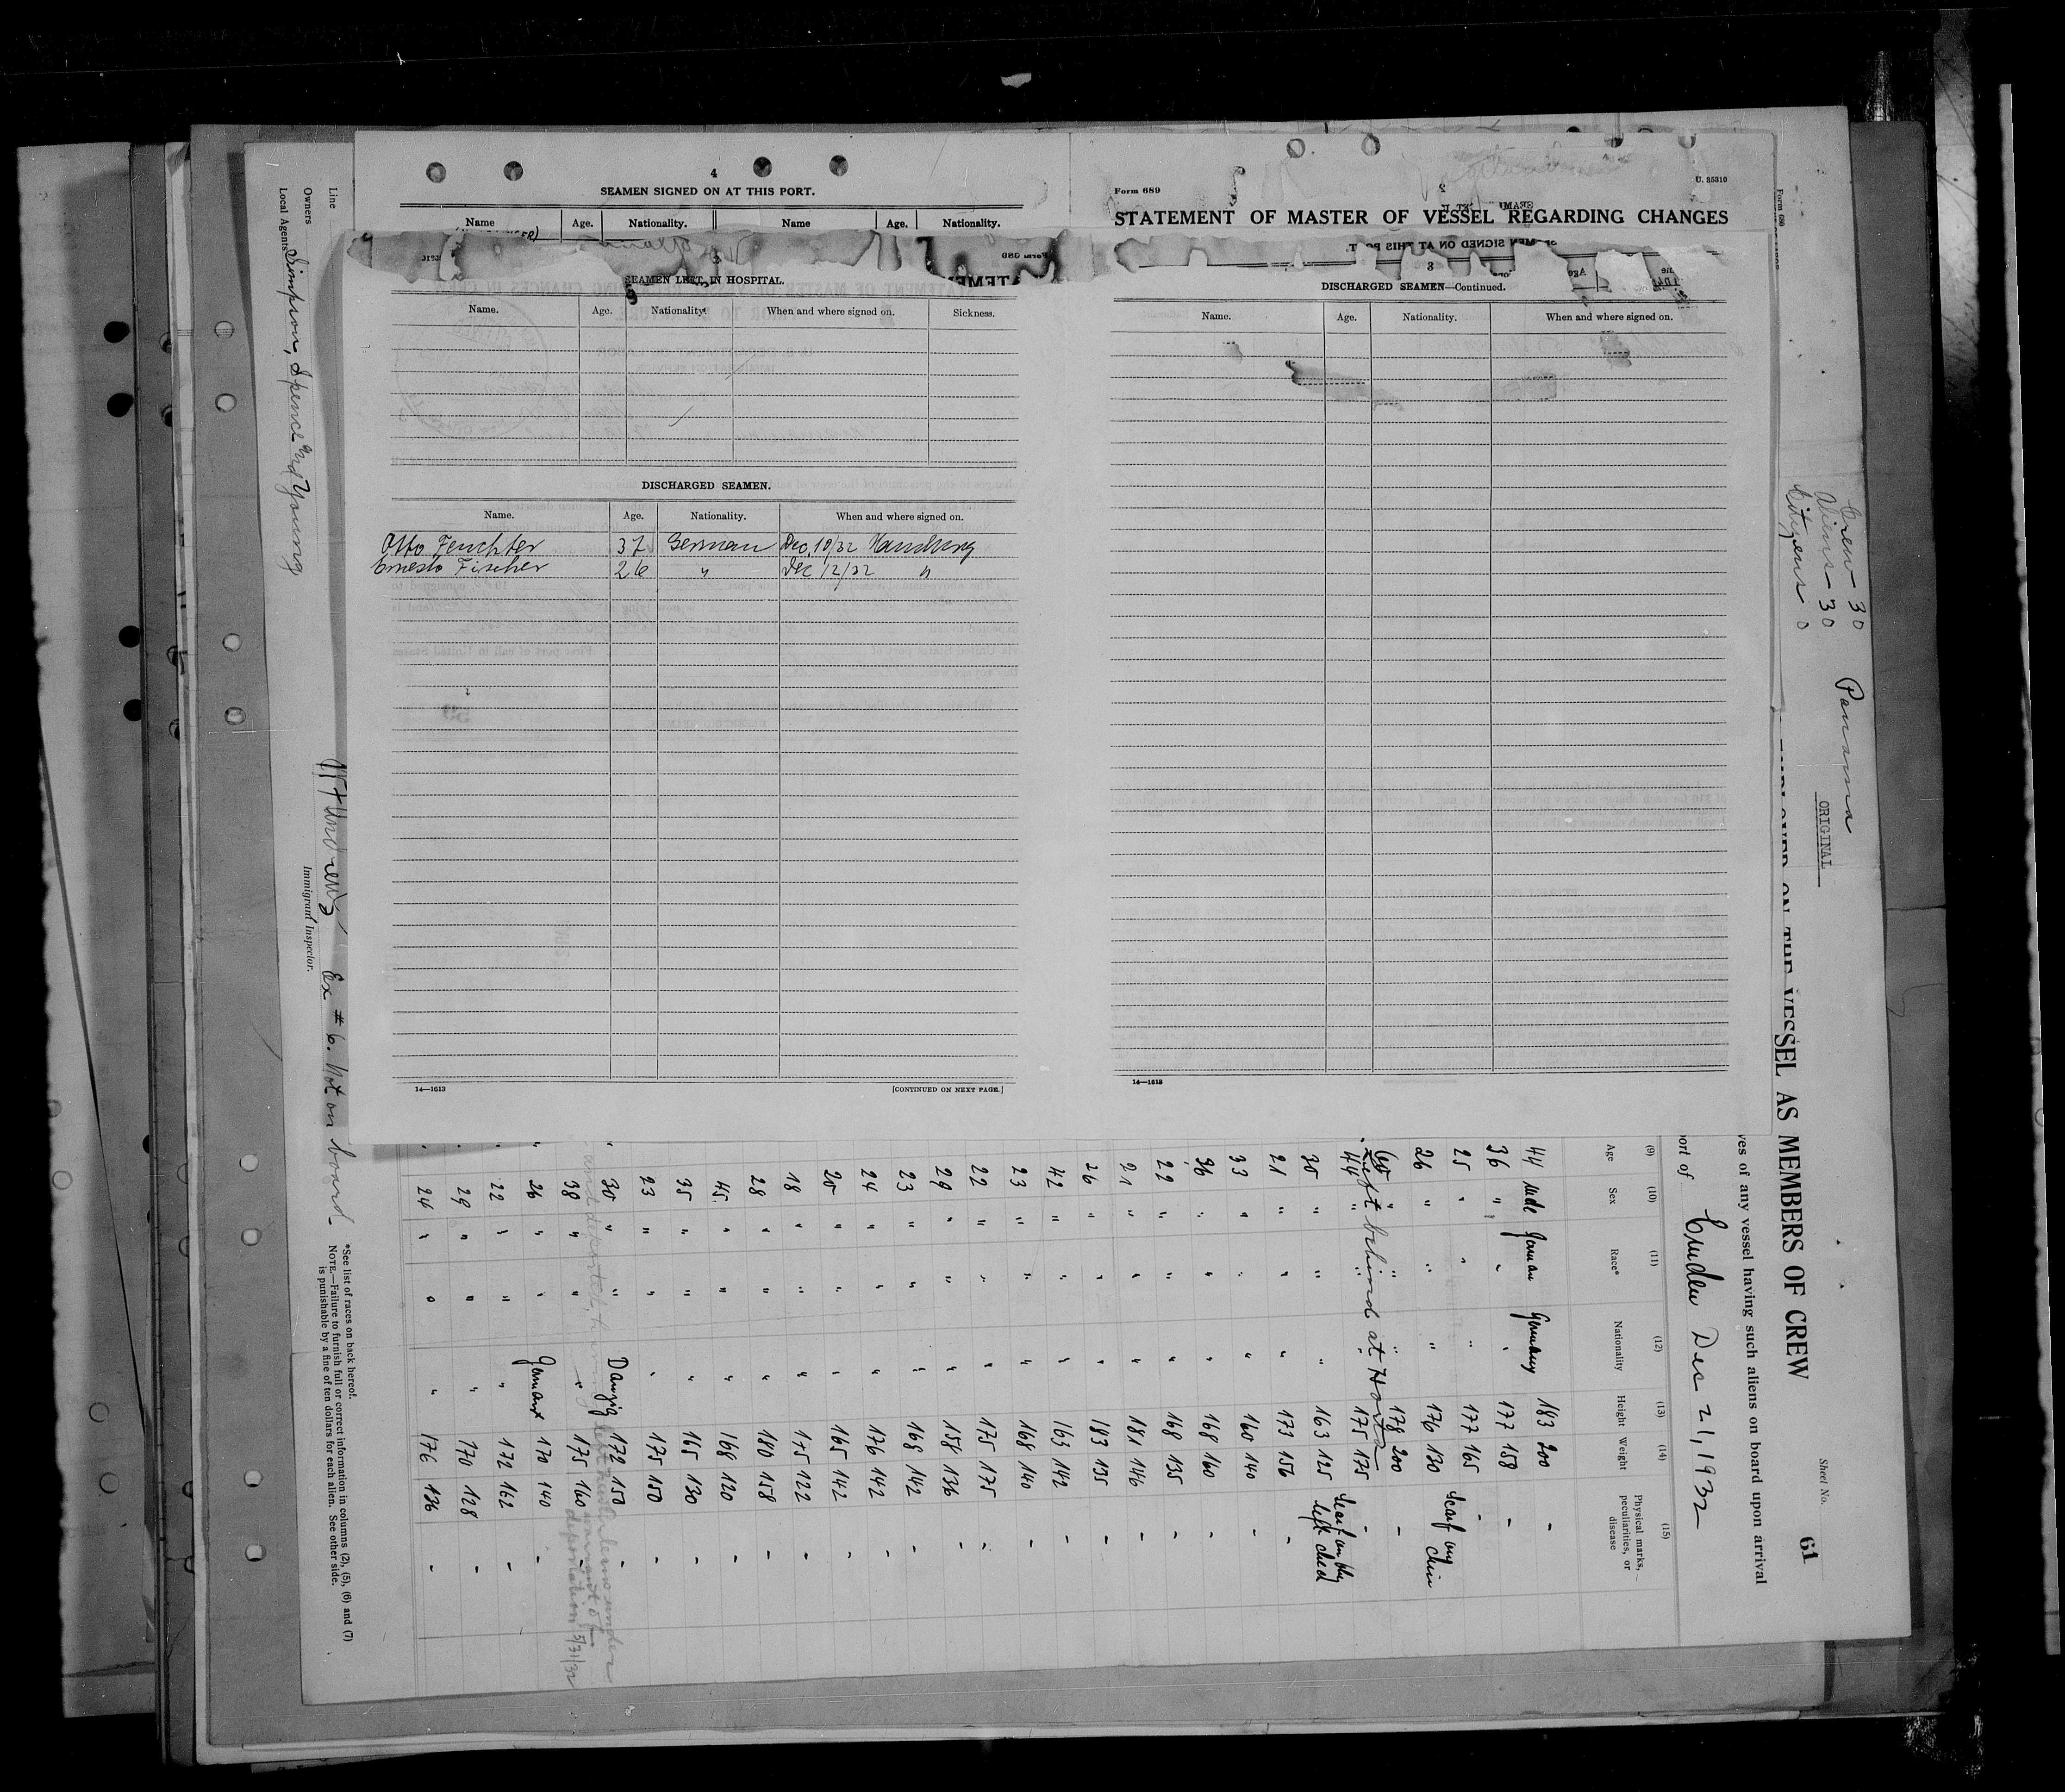 4
SEAMEN SIGNED ON AT THIS PORT.
Name Age. Nationality. Name Age. Nationality.
SEAMEN LEFT IN HOSPITAL.
Name. Age. Nationality. When and where signed on. Sickness.
DISCHARGED SEAMEN.
Name. Age. Nationality. When and where signed on.
Otto Feuchter 37 German Dec. 10/32 Hamburg
Ernesto Fischer 26 " Dec 12/32 "
14—1613 [CONTINUED ON NEXT PAGE.]
Form 689 U. 25310
STATEMENT OF MASTER OF VESSEL REGARDING CHANGES
3
DISCHARGED SEAMEN—Continued.
Name. Age. Nationality. When and where signed on.
14—1613
Crew - 30
Aliens - 30
Citizens 0
Panama
ORIGINAL
Sheet No. 61
ON THE VESSEL AS MEMBERS OF CREW
ves of any vessel having such aliens on board upon arrival
port of Dec 21, 1932
(9) (10) (11) (12) (13) (14) (15)
Age Sex Race* Nationality Height Weight Physical marks, peculiarities, or disease
44 male German Germany 183 200 -
36 " " " 177 158 -
25 " " " 177 165 -
26 " " " 176 130 Scarf on chin
60 " " " 178 200 -
44 " " " 175 175 -
Left behind at Horta
30 " " " 163 125 Scarf on the left cheek
21 " " " 173 156 -
33 " " " 160 140 -
36 " " " 168 160 -
22 " " " 168 135 -
21 " " " 181 146 -
26 " " " 183 135 -
42 " " " 163 142 -
23 " " " 168 140 -
22 " " " 175 175 -
29 " " " 158 136 -
23 " " " 168 142 -
24 " " " 176 142 -
20 " " " 165 142 -
18 " " " 175 122 -
28 " " " 180 158 -
45 " " " 168 120 -
35 " " " 165 130 -
23 " " " 175 150 -
30 " " Danzig 172 150 -
38 " " " 175 160 -
under
warrant of
deportation
26 " " German 170 140 -
22 " " " 172 162 -
29 " " " 170 128 -
24 " " " 176 136 -
*See list of races on back hereof.
NOTE.—Failure to furnish full or correct information in columns (2), (5), (6) and (7)
is punishable by a fine of ten dollars for each alien. See other side.
Line
Owners
Local Agents Simpson, Spence and Young
Ex # 6. Not on board.
Immigrant Inspector.